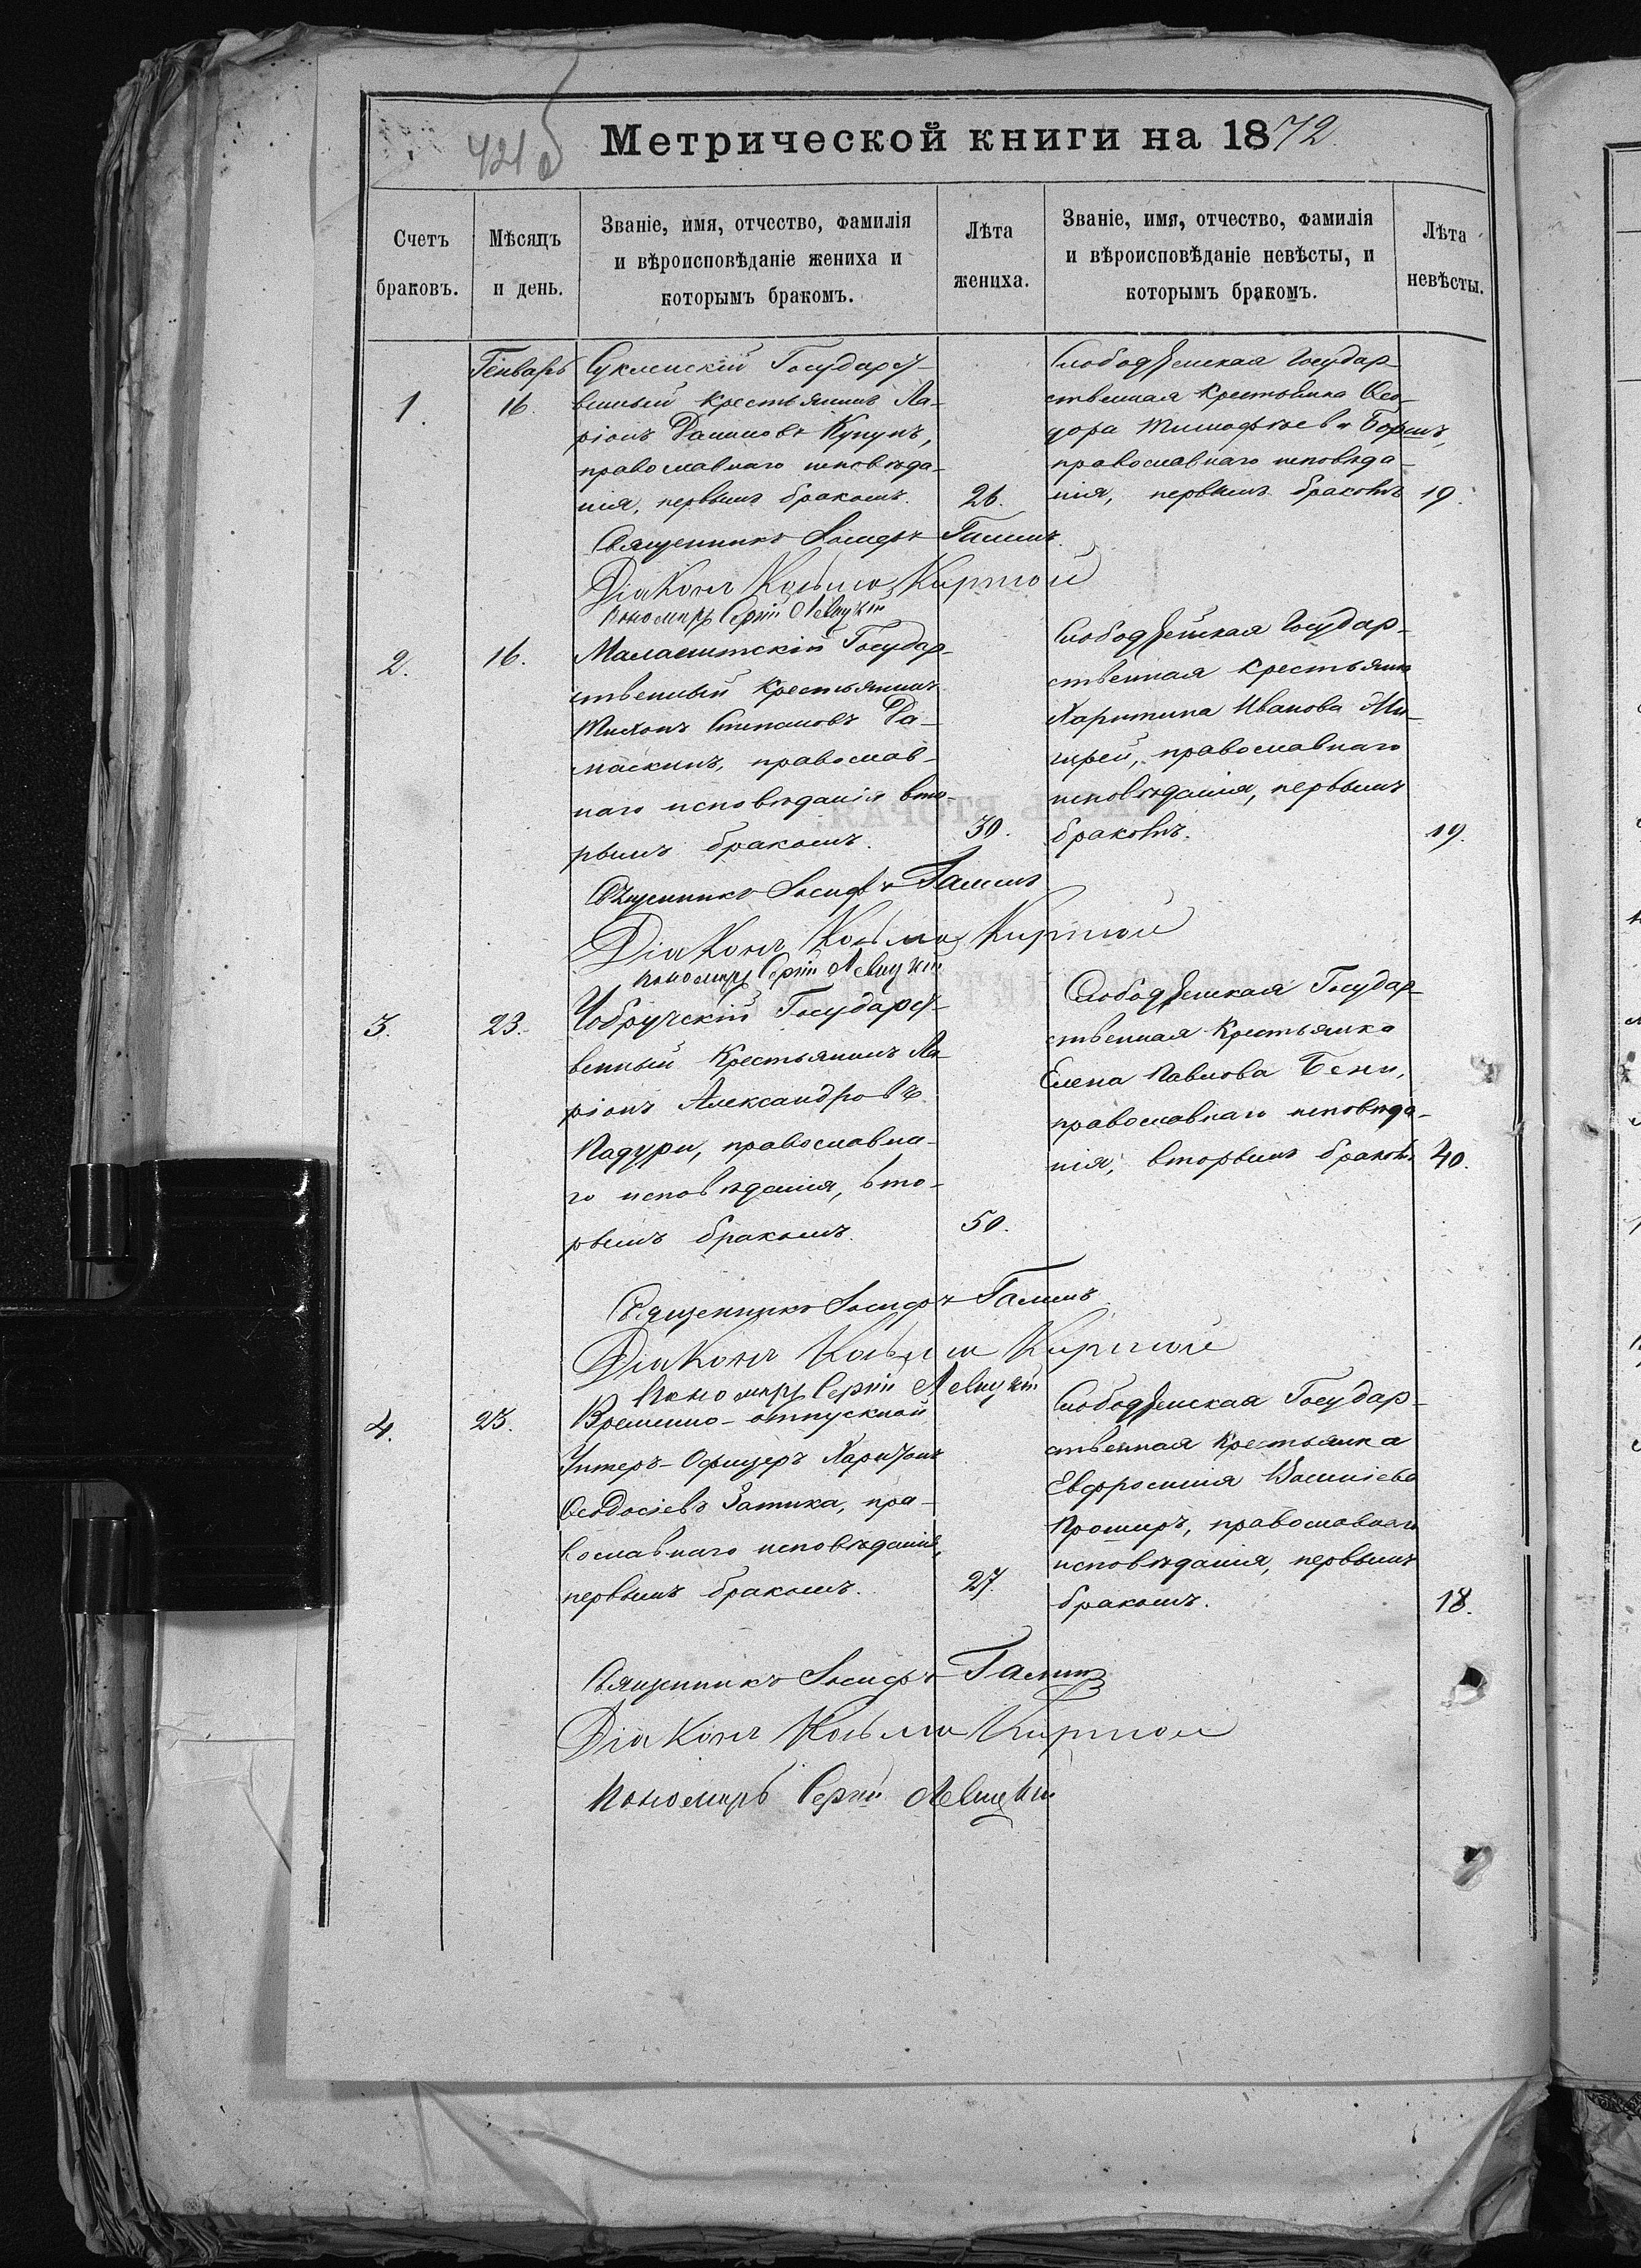 Метрической книги на 1872
Счетъ браковъ.
Мѣсяцъ и день.
Званіе, имя, отчество, фамилія
и вѣроисповѣданіе жениха и
которымъ бракомъ.
Лѣта жениха.
Званіе, имя, отчество, фамилія
и вѣроисповѣданіе невѣсты, и
которымъ бракомъ.
Лѣта невѣсты.
1.
Генварь
16.
Суклейскій Государст-
венный крестьянинъ Ла-
ріонъ Даниловъ Купунъ,
православнаго исповѣда-
нія, первымъ бракомъ.
26.
Слободзейская Государ-
ственная Крестьянка Ѳео-
дора Тимофѣева Боршъ,
православнаго исповѣда-
нія, первымъ бракомъ
19.
Священникъ Іосифъ
Діаконъ Косьма Киржой
Пономарь Сергій Левицкій
2.
16.
Малаештскій Государ-
ственный Крестьянинъ
Тихонъ Степановъ Да-
маскинъ, православ-
наго исповѣданія вто-
рымъ бракомъ.
30.
Слободзейская Государ-
ственная крестьянка
Харитина Иванова
православнаго
исповѣданія, первымъ
бракомъ.
19.
Священникъ Іосифъ
Діаконъ Косьма Киржой
Пономарь Сергій Левицкій
3.
23.
Чобручскій Государст-
венный Крестьянинъ Ла-
ріонъ Александровъ
Падури, православна-
го исповѣданія, вто-
рымъ бракомъ.
50.
Слободзейская Государ-
ственная Крестьянка
Елена Павлова
православнаго исповѣда-
нія, вторымъ бракомъ
40.
Священникъ Іосифъ
Діаконъ Косьма Киржой
Пономарь Сергій Левицкій
4.
23.
Временно-отпускной
Унтеръ-Офицеръ Харитонъ
Ѳеодосіевъ Затика, пра-
вославнаго исповѣданія,
первымъ бракомъ.
27.
Слободзейская Государ-
ственная Крестьянка
Евфросинія Василіева
православнаго
исповѣданія, первымъ
бракомъ.
18.
Священникъ Іосифъ
Діаконъ Косьма Киржой
Пономарь Сергій Левицкій